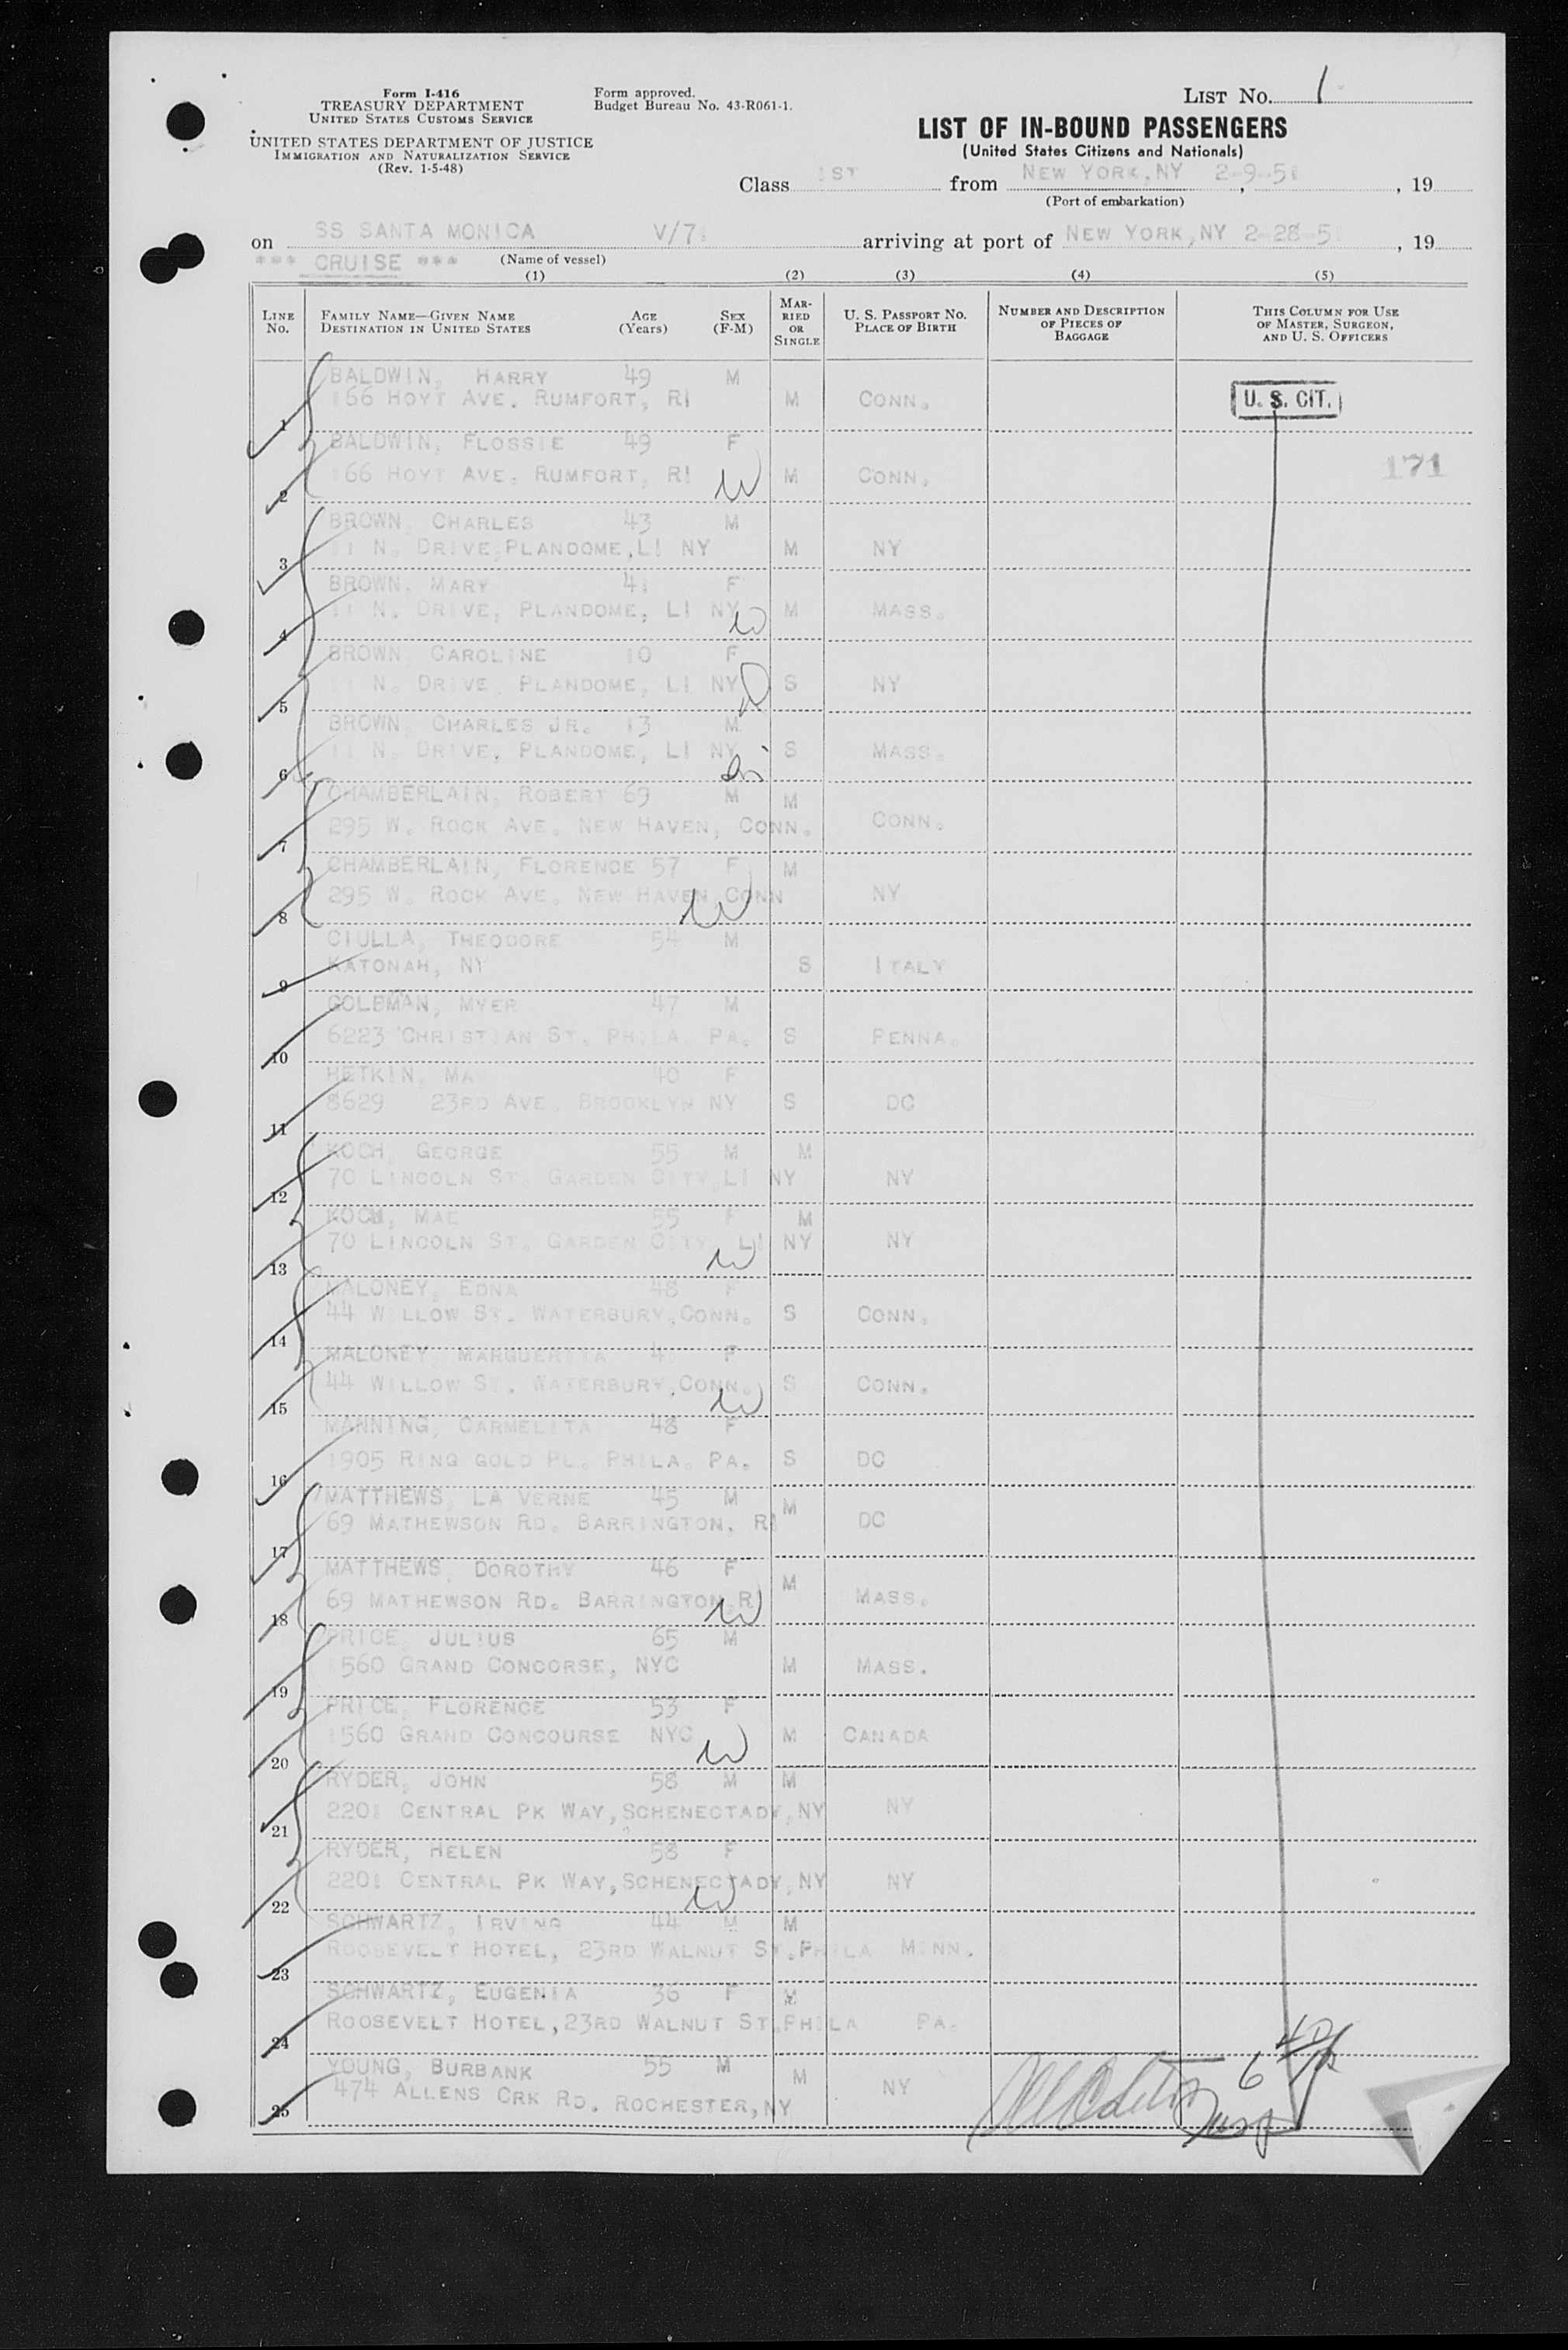 Form I-416
TREASURY DEPARTMENT
UNITED STATES CUSTOMS SERVICE
UNITED STATES DEPARTMENT OF JUSTICE
IMMIGRATION AND NATURALIZATION SERVICE
(Rev. 1-5-48)
Form approved.
Budget Bureau No. 43-R061-1.
LIST No. 1
LIST OF IN-BOUND PASSENGERS
(United States Citizens and Nationals)
Class 1ST from NEW YORK, NY 2-9-51, 19
(Port of embarkation)
on SS SANTA MONICA V/71 arriving at port of NEW YORK, NY 2-28-51, 19
*** CRUISE *** (Name of vessel)
(1) (2) (3) (4) (5)
LINE No. FAMILY NAME—GIVEN NAME DESTINATION IN UNITED STATES AGE (Years) SEX (F-M) MARRIED OR SINGLE U. S. PASSPORT No. PLACE OF BIRTH NUMBER AND DESCRIPTION OF PIECES OF BAGGAGE THIS COLUMN FOR USE OF MASTER, SURGEON, AND U. S. OFFICERS
BALDWIN, HARRY 49 M
1 166 HOYT AVE. RUMFORT, RI M CONN. U. S. CIT.
BALDWIN, FLOSSIE 49 F
2 166 HOYT AVE. RUMFORT, RI M CONN. 171
BROWN, CHARLES 43 M
3 11 N. DRIVE, PLANDOME, LI NY M NY
BROWN, MARY 41 F
4 11 N. DRIVE, PLANDOME, LI NY M MASS.
BROWN, CAROLINE 10 F
5 11 N. DRIVE, PLANDOME, LI NY S NY
BROWN, CHARLES JR. 13 M
6 11 N. DRIVE, PLANDOME, LI NY S MASS.
CHAMBERLAIN, ROBERT 69 M M
7 295 W. ROCK AVE. NEW HAVEN, CONN. CONN.
CHAMBERLAIN, FLORENCE 57 F M
8 295 W. ROCK AVE. NEW HAVEN, CONN NY
CIULLA, THEODORE 54 M
9 KATONAH, NY S ITALY
GOLDMAN, MYER 47 M
10 6223 CHRISTIAN ST. PHILA. PA. S PENNA.
HETKIN, 40 F
11 8629 23RD AVE. BROOKLYN NY S DC
KOCH, GEORGE 55 M M
12 70 LINCOLN ST. GARDEN CITY, LI NY NY
KOCH, MAE 55 F M
13 70 LINCOLN ST. GARDEN CITY, LI NY NY
MALONEY, EDNA 48 F
14 44 WILLOW ST. WATERBURY, CONN. S CONN.
MALONEY, MARGUERITA 41 F
15 44 WILLOW ST. WATERBURY, CONN. S CONN.
MANNING, CARMELITA 48 F
16 1905 RING GOLD PL. PHILA. PA. S DC
MATTHEWS, LA VERNE 45 M M
17 69 MATHEWSON RD. BARRINGTON, RI DC
MATTHEWS, DOROTHY 46 F M
18 69 MATHEWSON RD. BARRINGTON, RI MASS.
PRICE, JULIUS 65 M
19 1560 GRAND CONCORSE, NYC M MASS.
PRICE, FLORENCE 53 F
20 1560 GRAND CONCOURSE NYC M CANADA
RYDER, JOHN 58 M M
21 2201 CENTRAL PK WAY, SCHENECTADY, NY NY
RYDER, HELEN 58 F
22 2201 CENTRAL PK WAY, SCHENECTADY, NY NY
SCHWARTZ, IRVING 44 M M
23 ROOSEVELT HOTEL, 23RD WALNUT ST. PHILA MINN.
SCHWARTZ, EUGENIA 36 F M
24 ROOSEVELT HOTEL, 23RD WALNUT ST. PHILA PA.
YOUNG, BURBANK 55 M M
25 474 ALLENS CRK RD. ROCHESTER, NY NY